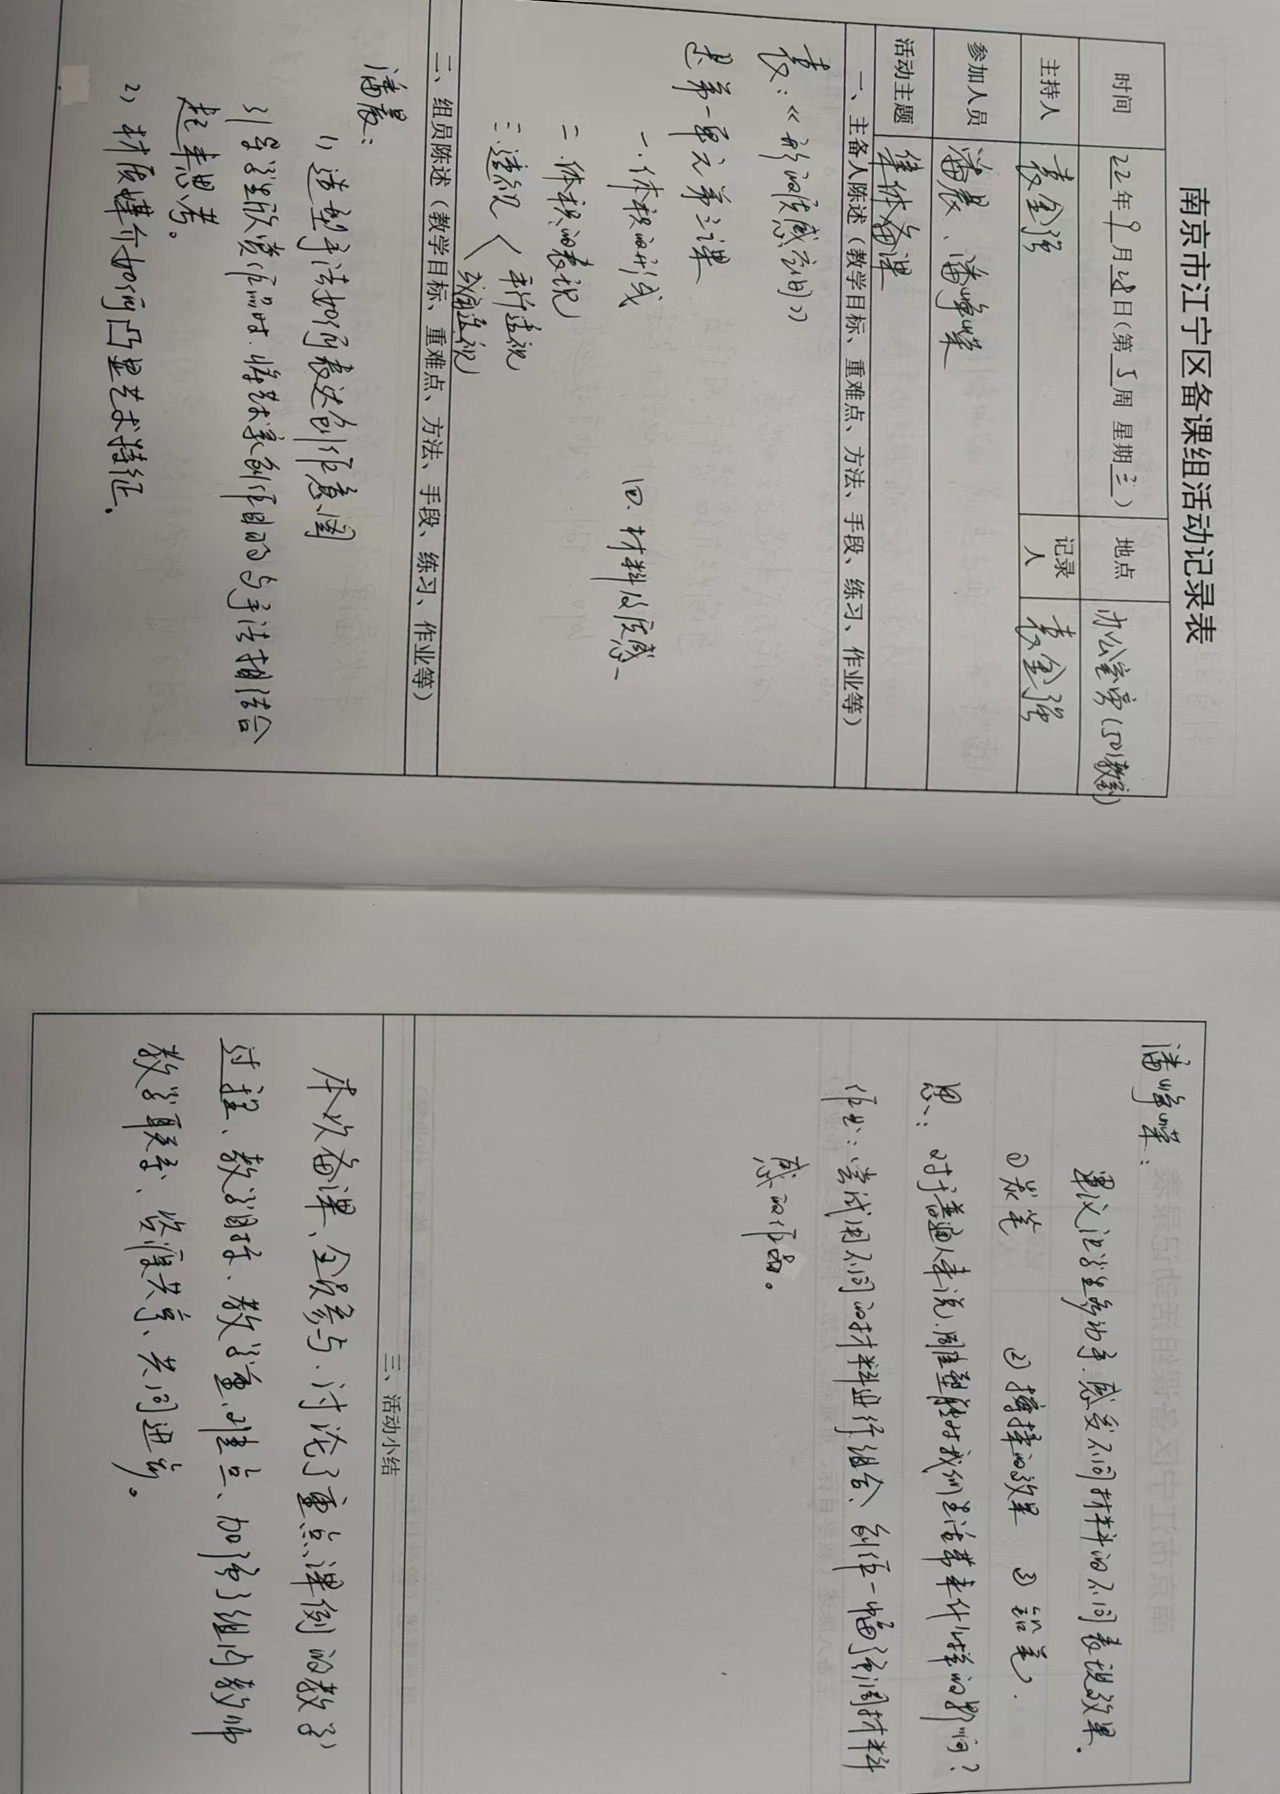 南京市江宁区备课组活动记录表
时间 22年9月28日(第5周 星期三) 地点 办公室旁(501教室)
主持人 袁金强 记录人 袁金强
参加人员 潘晨、潘峥嵘
活动主题 集体备课
一、主备人陈述（教学目标、重难点、方法、手段、练习、作业等）
袁：《形的质感空间》
是第一单元第三课
一.体积的形成 四.材料及质感
二.体积的表现
三.透视 平行透视
成角透视
二、组员陈述（教学目标、重难点、方法、手段、练习、作业等）
潘晨：
1）造型手法如何表达创作意图
引导学生欣赏作品时.将艺术家创作目的与手法相结合
起来思考。
2）材质媒介如何凸显艺术特征。
潘峥嵘：
建议让学生多动手.感受不同材料的不同表现效果.
①炭笔 ②擦揉的效果 ③铅笔.
思：对于普通人来说.雕塑能对我们生活带来什么样的影响?
作业：尝试用不同的材料进行组合、创作一幅强调材料
感的作品。
三、活动小结
本次备课、全员参与.讨论了重点课例的教学
过程、教学目标、教学重难点、加强了组内教师
教学联系、资源共享、共同进步。